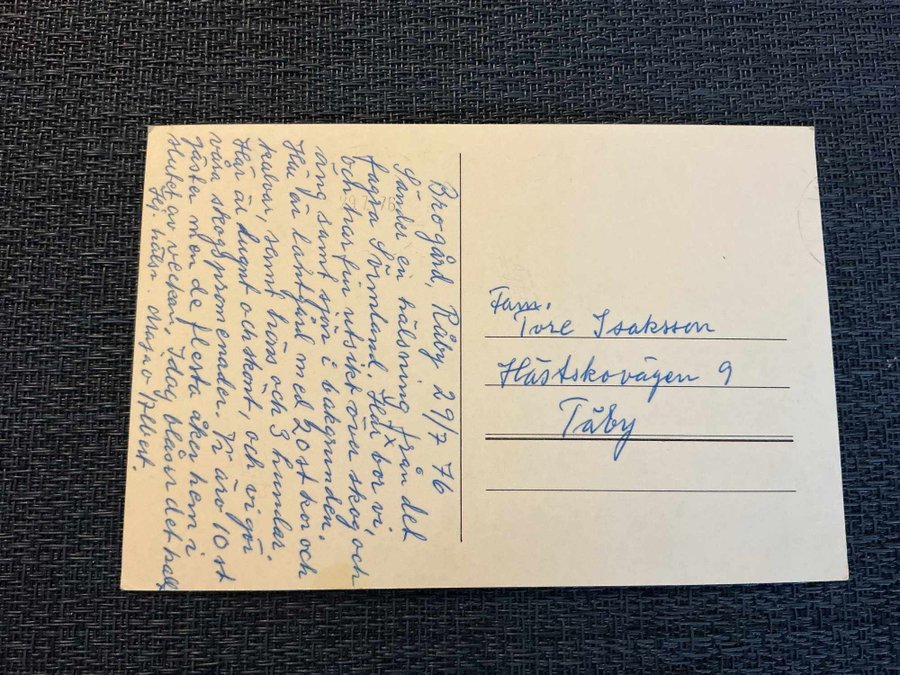 Brogård, Råby 29/7 76
Sänder en hälsning från det
fagra Sörmland. Här x bor vi
och har fin utsikt över skog, och
äng samt sjön i bakgrunden.
Här är lantgård med 20 st kor och
kalvar, samt höns och 3 hundar.
Här är lugnt och skönt, och vi gör
våra skogspromenader. Vi äro 10 st
gäster men de flesta åker hem i
slutet av veckan. Idag blåser det halv
Hej hälsn. Maja o Albert.
29.7.76
Fam.
Tore Isaksson
Hästskovägen 9
Täby